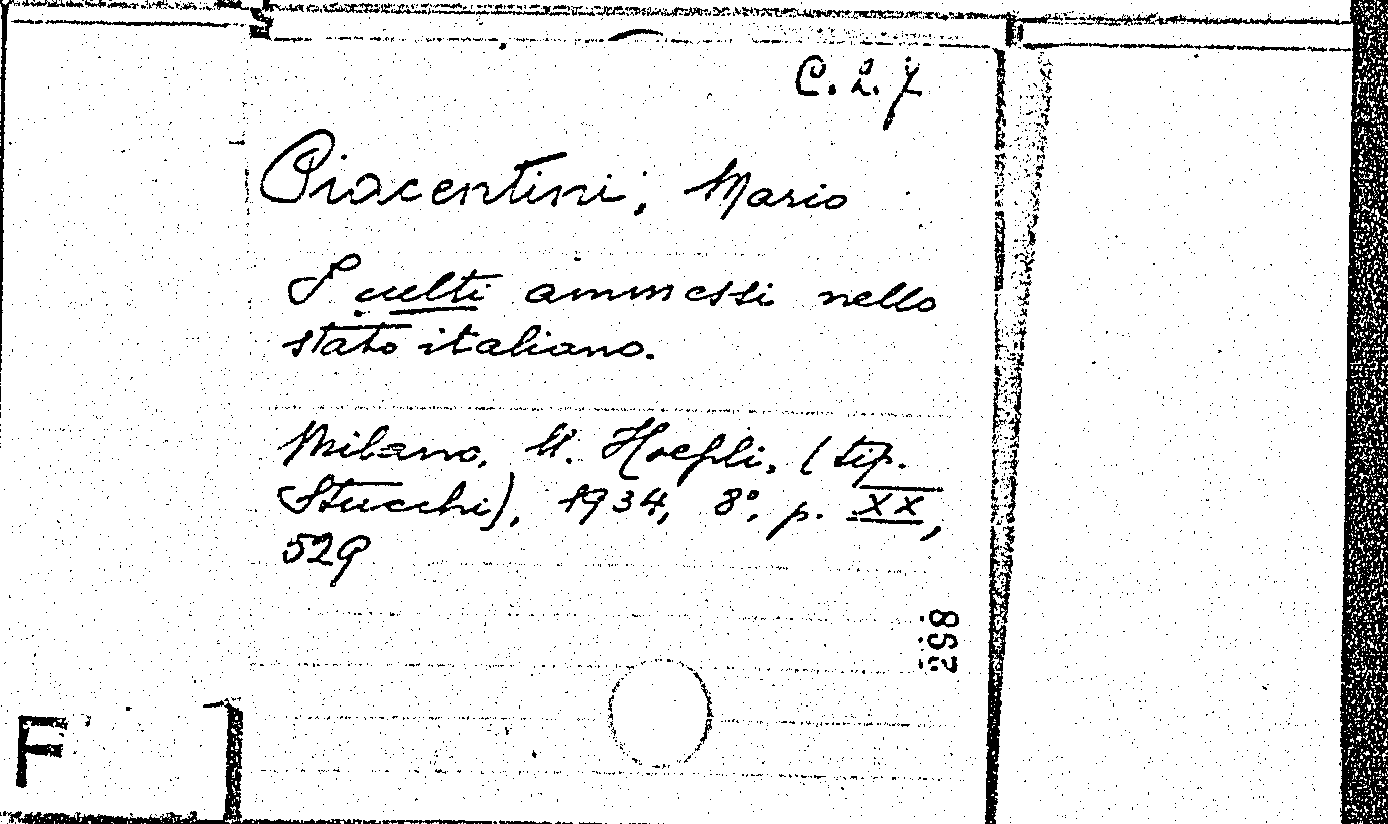 C. 2. 7
Piacentini, Mario
I culti ammessi nello
stato italiano.
Milano, U. Hoepli, (tip.
Stucchi), 1934, 8°, p. XX,
529
258
F